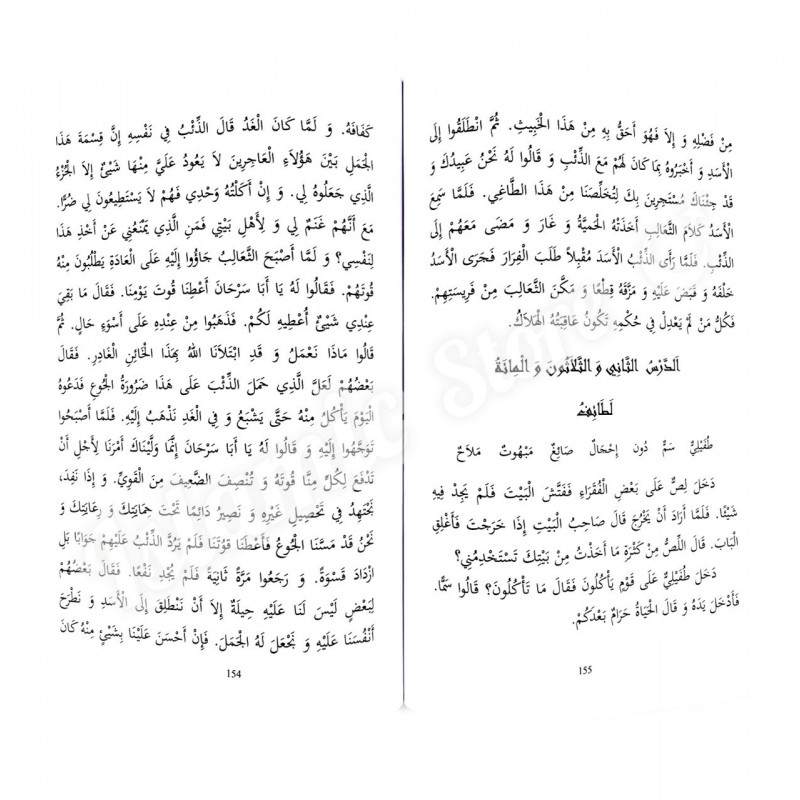 كَفَافَهُ. وَ لَمَّا كَانَ الْغَدُ قَالَ الذِّئْبُ فِي نَفْسِهِ إِنَّ قِسْمَةَ هَذَا
الْجَمَلِ بَيْنَ هَؤُلاَءِ الْعَاجِزِينَ لاَ يَعُودُ عَلَيَّ مِنْهَا شَيْئٌ إِلاَ الْجُزْءُ
الَّذِي جَعَلُوهُ لِي. وَ إِنْ أَكَلْتُهُ وَحْدِي فَهُمْ لاَ يَسْتَطِيعُونَ لِي ضُرًّا.
مَعَ أَنَّهُمْ غَنَمٌ لِي وَ لِأَهْلِ بَيْتِي فَمَنِ الَّذِي يَمْنَعُنِي عَنْ أَخْذِ هَذَا
لِنَفْسِي؟ وَ لَمَّا أَصْبَحَ الثَّعَالِبُ جَاؤُوا إِلَيْهِ عَلَى الْعَادَةِ يَطْلُبُونَ مِنْهُ
قُوتَهُمْ. فَقَالُوا لَهُ يَا أَبَا سَرْحَانَ أَعْطِنَا قُوتَ يَوْمِنَا. فَقَالَ مَا بَقِيَ
عِنْدِي شَيْئٌ أُعْطِيهِ لَكُمْ. فَذَهَبُوا مِنْ عِنْدِهِ عَلَى أَسْوَءِ حَالٍ. ثُمَّ
قَالُوا مَاذَا نَعْمَلُ وَ قَدِ ابْتَلاَنَا اللهُ بِهَذَا الْخَائِنِ الْغَادِرِ. فَقَالَ
بَعْضُهُمْ لَعَلَّ الَّذِي حَمَلَ الذِّئْبَ عَلَى هَذَا ضَرُورَةُ الْجُوعِ فَدَعُوهُ
الْيَوْمَ يَأْكُلُ مِنْهُ حَتَّى يَشْبَعَ وَ فِي الْغَدِ نَذْهَبُ إِلَيْهِ. فَلَمَّا أَصْبَحُوا
تَوَجَّهُوا إِلَيْهِ وَ قَالُوا لَهُ يَا أَبَا سَرْحَانَ إِنَّمَا وَلَّيْنَاكَ أَمْرَنَا لِأَجْلِ أَنْ
تَدْفَعَ لِكُلٍّ مِنَّا قُوتَهُ وَ تُنْصِفَ الضَّعِيفَ مِنَ الْقَوِيِّ. وَ إِذَا نَفِدَ،
تَجْتَهِدُ فِي تَحْصِيلِ غَيْرِهِ وَ نَصِيرُ دَائِمًا تَحْتَ حِمَايَتِكَ وَ رِعَايَتِكَ وَ
نَحْنُ قَدْ مَسَّنَا الْجُوعُ فَأَعْطِنَا قُوْتَنَا فَلَمْ يَرُدَّ الذِّئْبُ عَلَيْهِمْ جَوَابًا بَلِ
ازْدَادَ قَسْوَةً. وَ رَجَعُوا مَرَّةً ثَانِيَةً فَلَمْ يُجْدِ نَفْعًا. فَقَالَ بَعْضُهُمْ
لِبَعْضٍ لَيْسَ لَنَا عَلَيْهِ حِيلَةٌ إِلاَ أَنْ نَنْطَلِقَ إِلَى الْأَسَدِ وَ نَطْرَحَ
أَنْفُسَنَا عَلَيْهِ وَ نَجْعَلَ لَهُ الْجَمَلَ. فَإِنْ أَحْسَنَ عَلَيْنَا بِشَيْئٍ مِنْهُ كَانَ
154
مِنْ فَضْلِهِ وَ إِلاَ فَهُوَ أَحَقُّ بِهِ مِنْ هَذَا الْخَبِيثِ. ثُمَّ انْطَلَقُوا إِلَى
الْأَسَدِ وَ أَخْبَرُوهُ بِمَا كَانَ لَهُمْ مَعَ الذِّئْبِ وَ قَالُوا لَهُ نَحْنُ عَبِيدُكَ وَ
قَدْ جِئْنَاكَ مُسْتَجِرِينَ بِكَ لِتُخَلِّصَنَا مِنْ هَذَا الطَّاغِي. فَلَمَّا سَمِعَ
الْأَسَدُ كَلاَمَ الثَّعَالِبِ أَخَذَتْهُ الْحَمِيَّةُ وَ غَارَ وَ مَضَى مَعَهُمْ إِلَى
الذِّئْبِ. فَلَمَّا رَأَى الذِّئْبُ الْأَسَدَ مُقْبِلاً طَلَبَ الْفِرَارَ فَجَرَى الْأَسَدُ
خَلْفَهُ وَ قَبَضَ عَلَيْهِ وَ مَزَّقَهُ قِطَعًا وَ مَكَّنَ الثَّعَالِبَ مِنْ فَرِيسَتِهِمْ.
فَكُلُّ مَنْ لَمْ يَعْدِلْ فِي حُكْمِهِ تَكُونُ عَاقِبَتُهُ الْهَلاَكُ.
اَلدَّرْسُ الثَّانِي وَ الثَّلاَثُونَ وَ الْمِائَةُ
لَطَائِفُ
طُفَيْلِيٌّ سَمٌّ دُون إِحْجَالٌ صَائِغٌ مَبْهُوتٌ مَلاَحٌ
دَخَلَ لِصٌّ عَلَى بَعْضِ الْفُقَرَاءِ فَفَتَّشَ الْبَيْتَ فَلَمْ يَجِدْ فِيهِ
شَيْئًا. فَلَمَّا أَرَادَ أَنْ يَخْرُجَ قَالَ صَاحِبُ الْبَيْتِ إِذَا خَرَجْتَ فَأَغْلِقِ
الْبَابَ. قَالَ اللِّصُّ مِنْ كَثْرَةِ مَا أَخَذْتُ مِنْ بَيْتِكَ تَسْتَخْدِمُنِي؟
دَخَلَ طُفَيْلِيٌّ عَلَى قَوْمٍ يَأْكُلُونَ فَقَالَ مَا تَأْكُلُونَ؟ قَالُوا سَمًّا.
فَأَدْخَلَ يَدَهُ وَ قَالَ الْحَيَاةُ حَرَامٌ بَعْدَكُمْ.
155